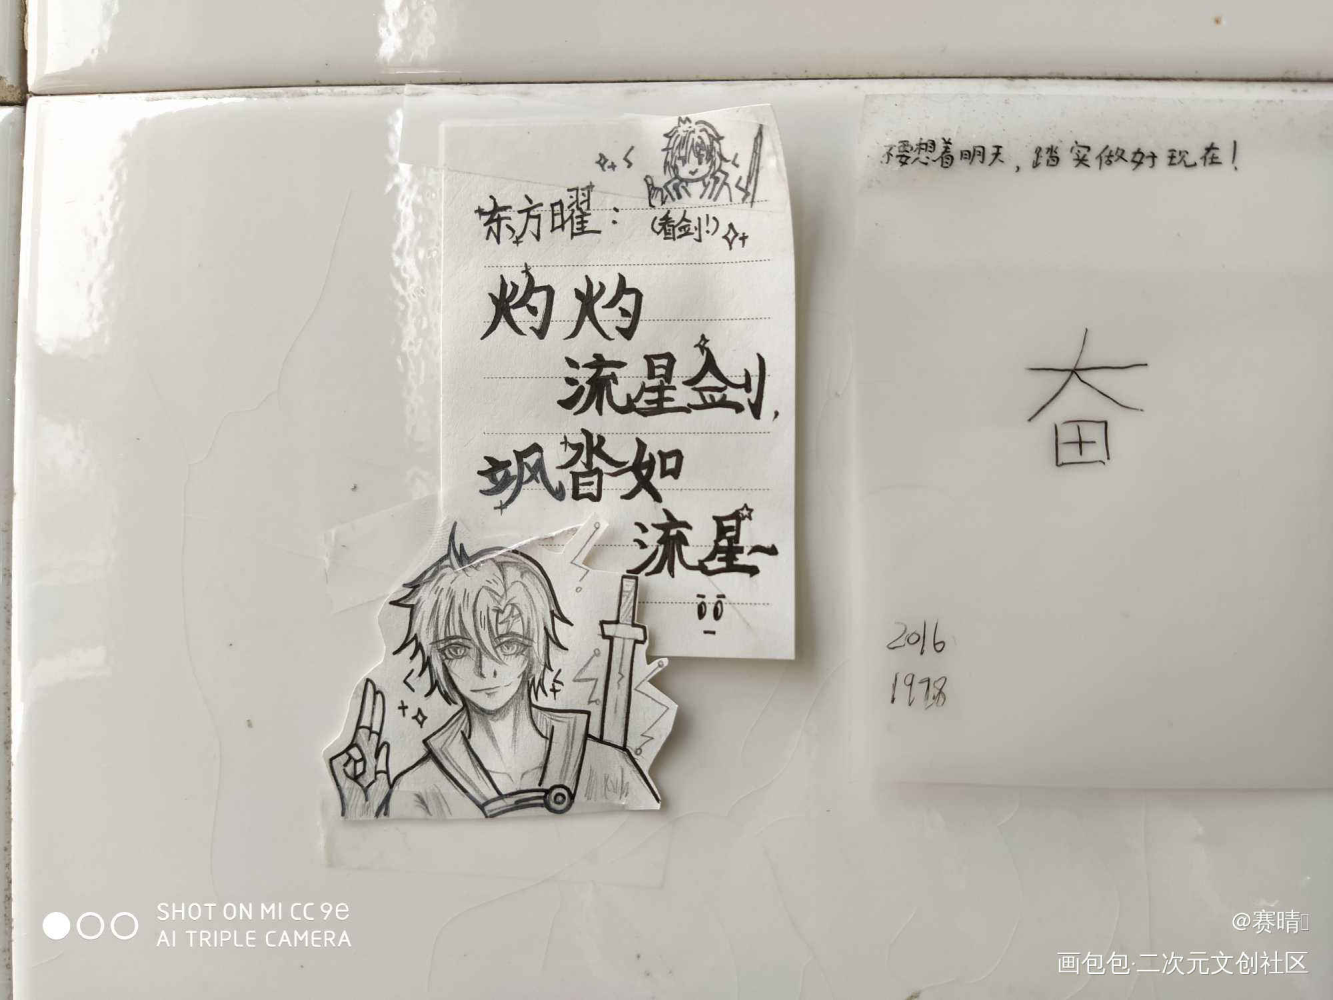 东方曜：
（看剑！）
灼灼
流星剑，
飒沓如
流星～
不要想着明天，踏实做好现在！
奋
2016
1998
SHOT ON MI CC 9e
AI TRIPLE CAMERA
@赛晴
画包包·二次元文创社区